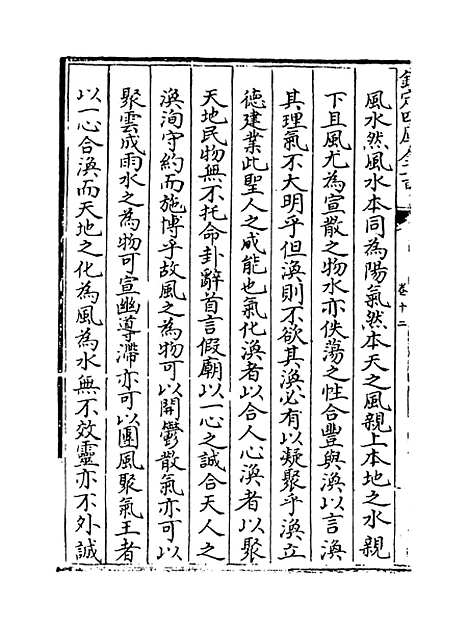 欽定四庫全書
卷十二
風水然風水本同為陽氣然本天之風親上本地之水親
下且風尤為宣散之物水亦佚蕩之性合豐與渙以言渙
其理氣不大明乎但渙則不欲其渙必有以凝聚乎渙立
德建業此聖人之咸能也氣化渙者以合人心渙者以聚
天地民物無不托命卦辭首言假廟以一心之誠合天人之
渙洵守約而施博乎故風之為物可以開鬱散氣亦可以
聚雲成雨水之為物可宣幽導滯亦可以團風聚氣王者
以一心合渙而天地之化為風為水無不效靈亦不外誠